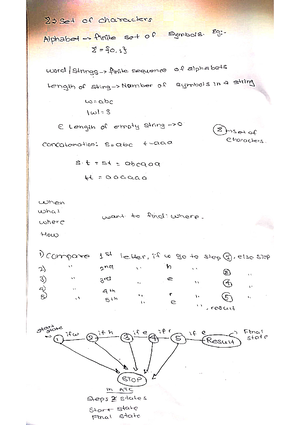 Σ = set of characters
Alphabet → finite set of symbols. Eg:
Σ = {0,1}
word | Strings → finite sequence of alphabets
Length of string → Number of symbols in a string
w = abc
|w| = 3
ε Length of empty string → 0
Σ → set of characters.
Concatenation: S = abc t = aaa
s.t = st = abcaaa
tt = aaaaaa
When
What
where
How
want to find where.
1) Compare 1st letter, if w go to step 2, else stop
2) " 2nd " h " 3 "
3) " 3rd " e " 4 "
4) " 4th " r " 5 "
5) " 5th " e " , result
start state
1 if w 2 if h 3 if e 4 if r 5 if e Result → Final state
STOP
Steps states
Start state
Final state